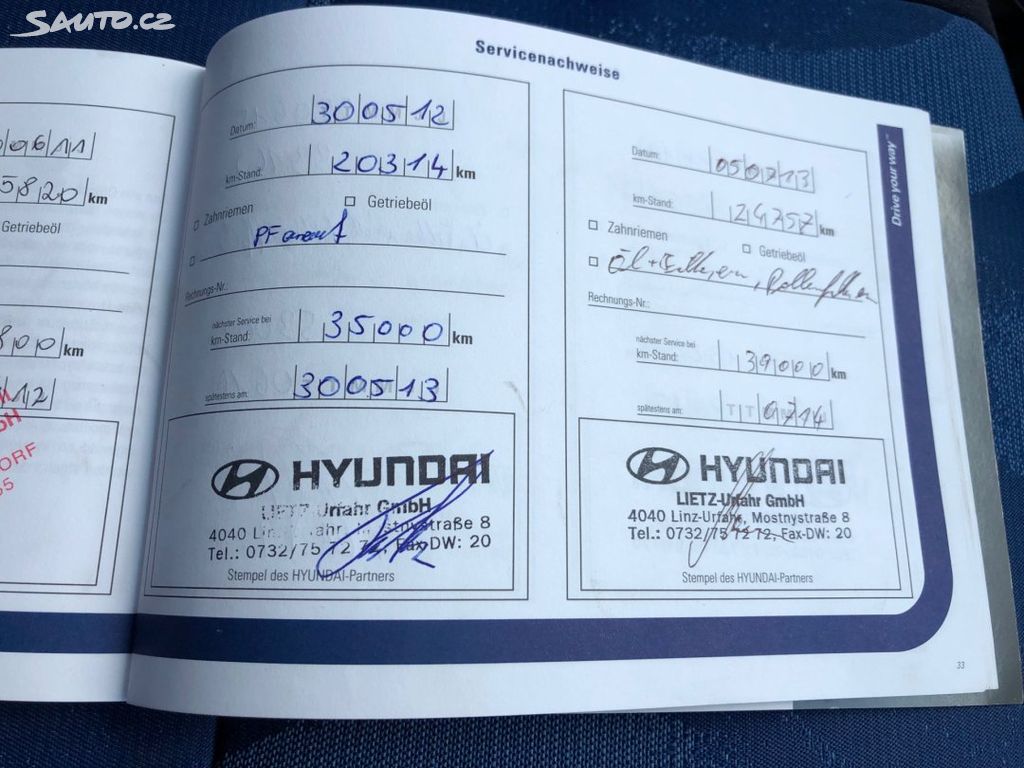 Sauto.cz
Servicenachweise
0611
5820 km
Getriebeöl
800 km
12
ORF
Datum: 300512
km-Stand: 20314 km
Zahnriemen Getriebeöl
Rechnungs-Nr.:
nächster Service bei
km-Stand: 35000 km
spätestens am: 300513
HYUNDAI
LIETZ-Urfahr GmbH
4040 Linz-Urfahr, Mostnystraße 8
Tel.: 0732/75 72 72, Fax-DW: 20
Stempel des HYUNDAI-Partners
Datum: 050713
km-Stand: 24757 km
Zahnriemen Getriebeöl
Öl +
Rechnungs-Nr.:
nächster Service bei
km-Stand: 39000 km
spätestens am: TT 0714
HYUNDAI
LIETZ-Urfahr GmbH
4040 Linz-Urfahr, Mostnystraße 8
Tel.: 0732/75 72 72, Fax-DW: 20
Stempel des HYUNDAI-Partners
Drive your way™
33